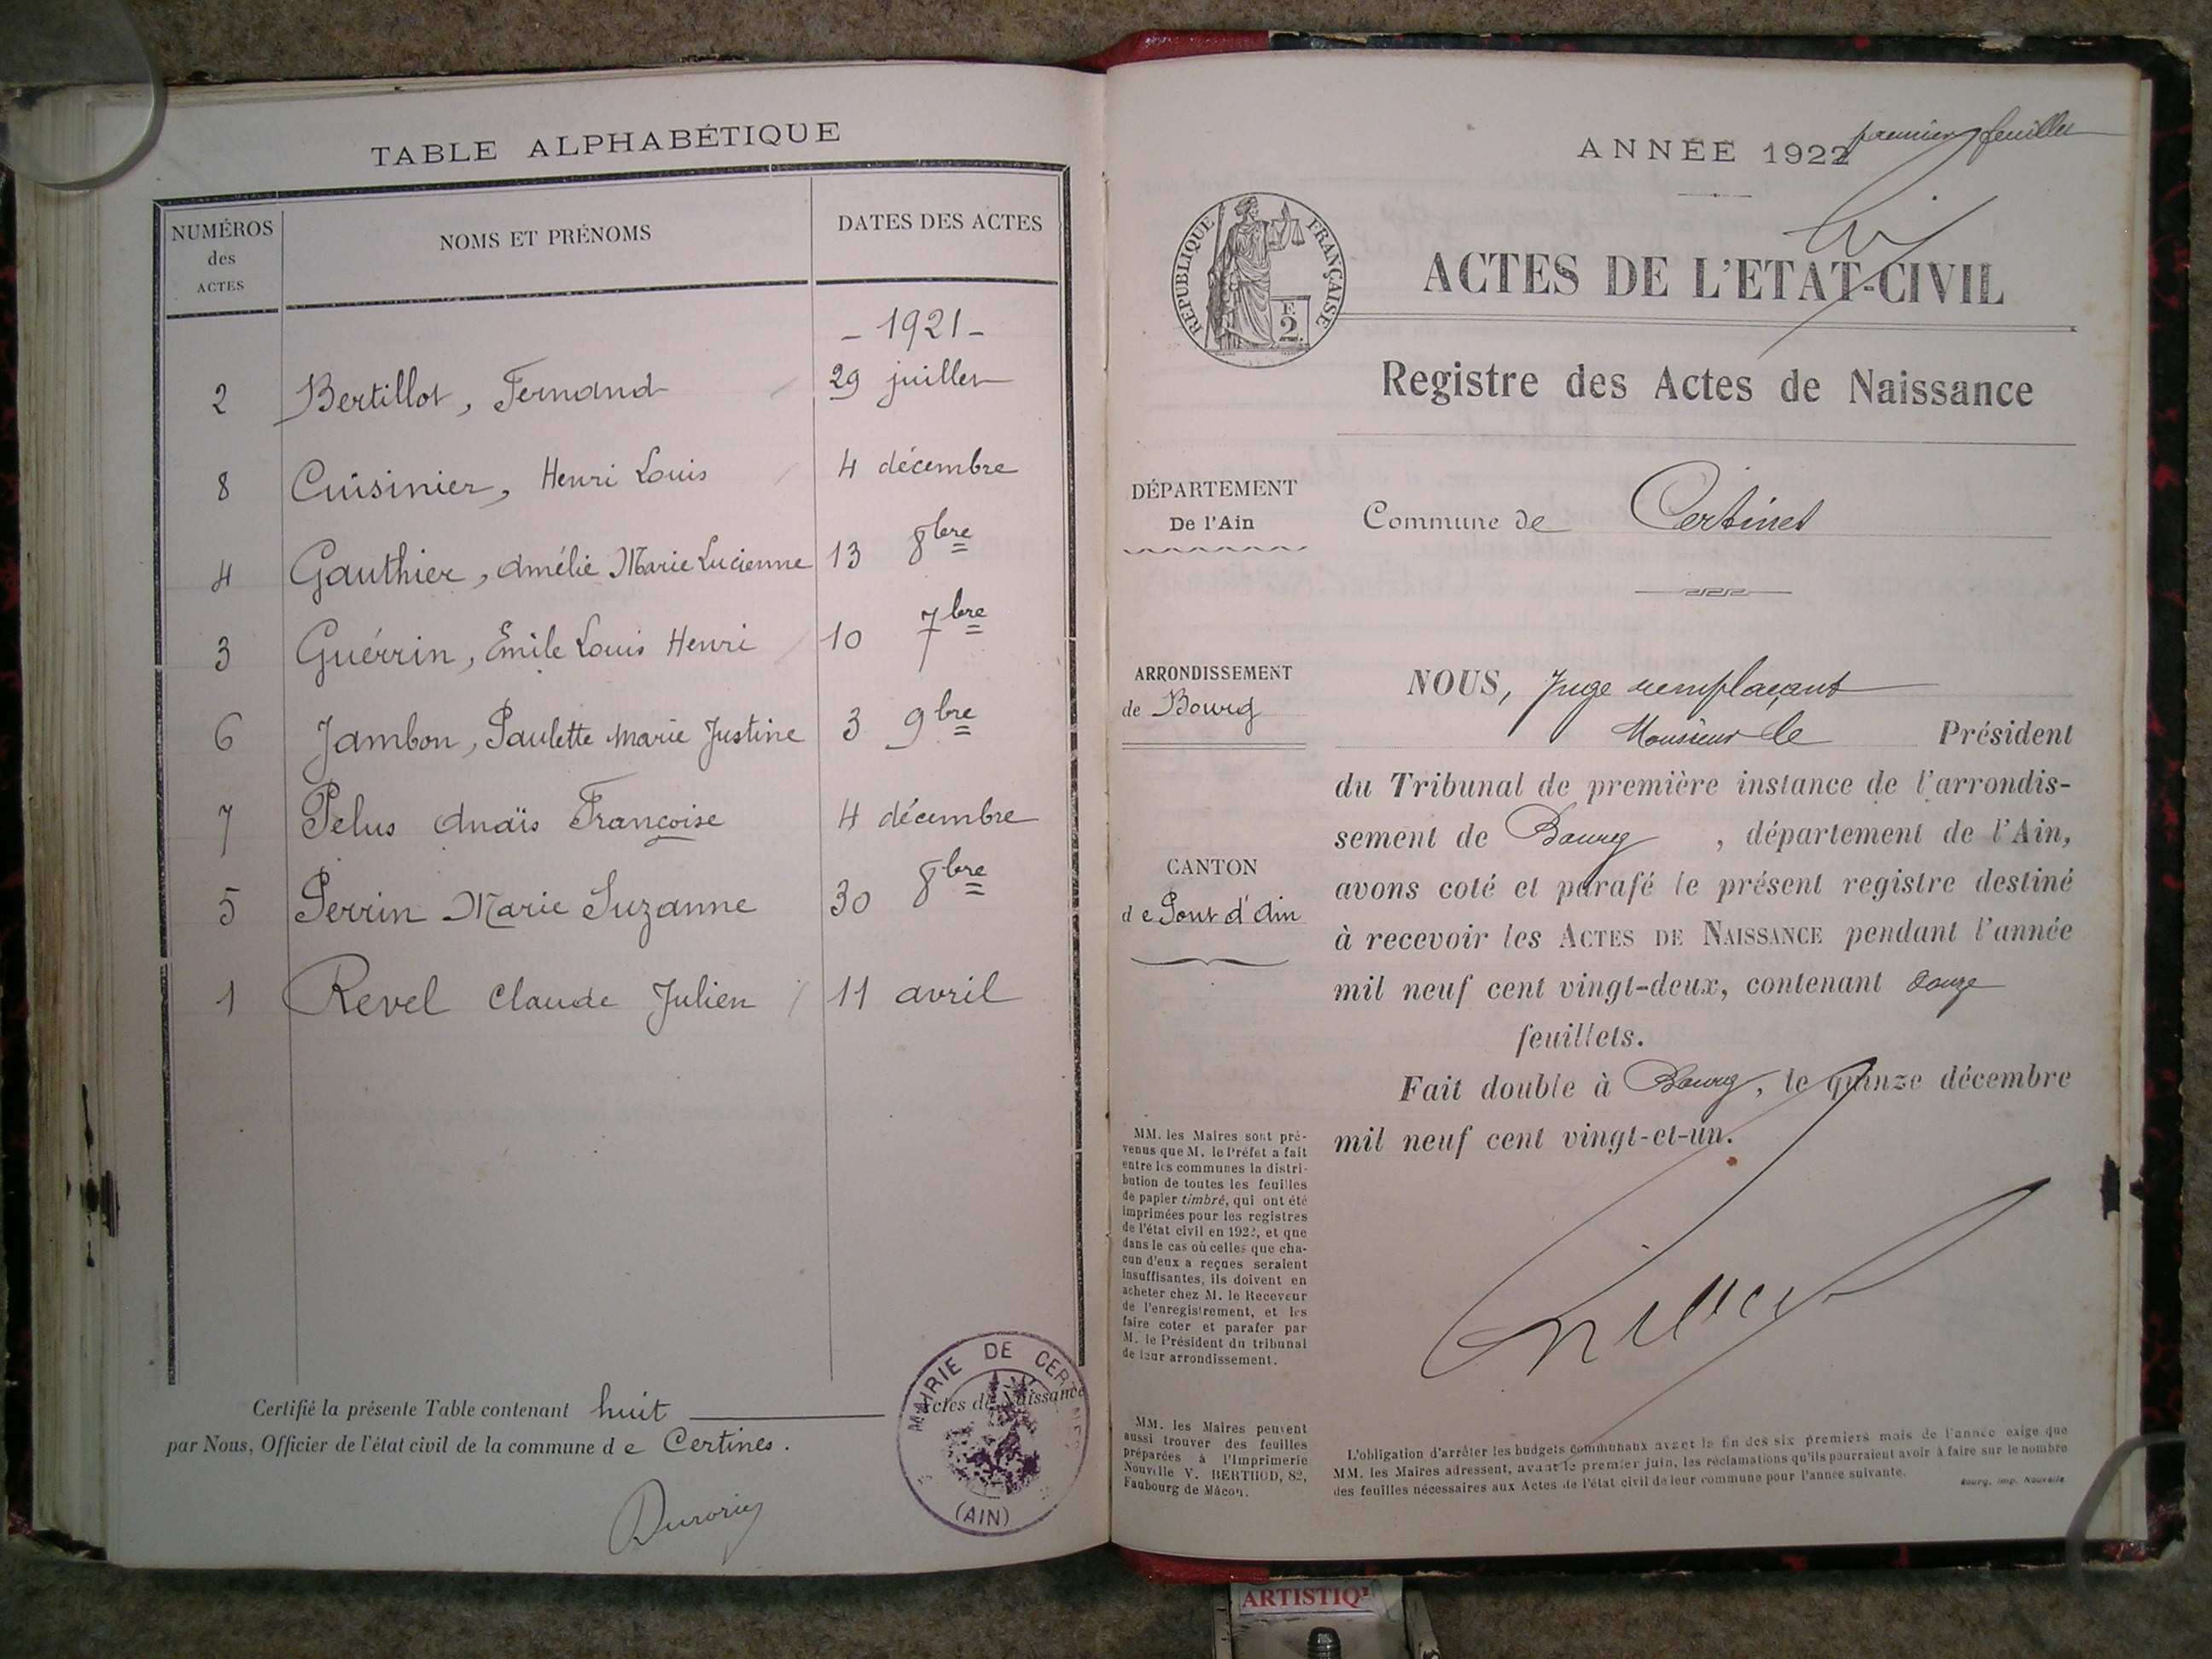 TABLE ALPHABÉTIQUE
NUMÉROS des ACTES NOMS ET PRÉNOMS DATES DES ACTES
- 1921 -
2 Bertillot, Fernand 29 juillet
8 Cuisinier, Henri Louis 4 décembre
4 Gauthier, Amélie Marie Lucienne 13 8bre
3 Guérrin, Émile Louis Henri 10 7bre
6 Jambon, Paulette Marie Justine 3 9bre
7 Pelus Anaïs Françoise 4 décembre
5 Perrin Marie Suzanne 30 8bre
1 Revel Claude Julien 11 avril
Certifié la présente Table contenant huit Actes de Naissance
par Nous, Officier de l'état civil de la commune de Certines.
MAIRIE DE CERTINES
(AIN)
ANNÉE 1922
premier feuillet
RÉPUBLIQUE FRANÇAISE
F. 2
ACTES DE L'ETAT-CIVIL
Registre des Actes de Naissance
DÉPARTEMENT
De l'Ain
Commune de Certines
ARRONDISSEMENT
de Bourg
CANTON
de Pont d'Ain
NOUS, Juge remplaçant
Monsieur le Président
du Tribunal de première instance de l'arrondis-
sement de Bourg, département de l'Ain,
avons coté et parafé le présent registre destiné
à recevoir les ACTES DE NAISSANCE pendant l'année
mil neuf cent vingt-deux, contenant douze
feuillets.
Fait double à Bourg, le quinze décembre
mil neuf cent vingt-et-un.
MM. les Maires sont pré-
venus que M. le Préfet a fait
entre les communes la distri-
bution de toutes les feuilles
de papier timbré, qui ont été
imprimées pour les registres
de l'état civil en 1922, et que
dans le cas où celles que cha-
cun d'eux a reçues seraient
insuffisantes, ils doivent en
acheter chez M. le Receveur
de l'enregistrement, et les
faire coter et parafer par
M. le Président du tribunal
de leur arrondissement.
MM. les Maires peuvent
aussi trouver des feuilles
préparées à l'Imprimerie
Nouvelle V. BERTHOD, 82,
Faubourg de Mâcon.
L'obligation d'arrêter les budgets communaux avant la fin des six premiers mois de l'année exige que
MM. les Maires adressent, avant le premier juin, les réclamations qu'ils pourraient avoir à faire sur le nombre
des feuilles nécessaires aux Actes de l'état civil de leur commune pour l'année suivante.
Bourg, imp. Nouvelle
ARTISTIQ